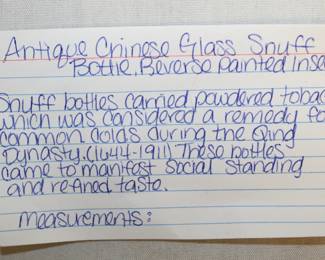 Antique Chinese Glass Snuff
Bottle, Reverse Painted Inse
Snuff bottles carried powdered tobac
which was considered a remedy fo
common colds during the Qing
Dynasty. (1644-1911) These bottles
came to manifest social standing
and refined taste.
Measurements: